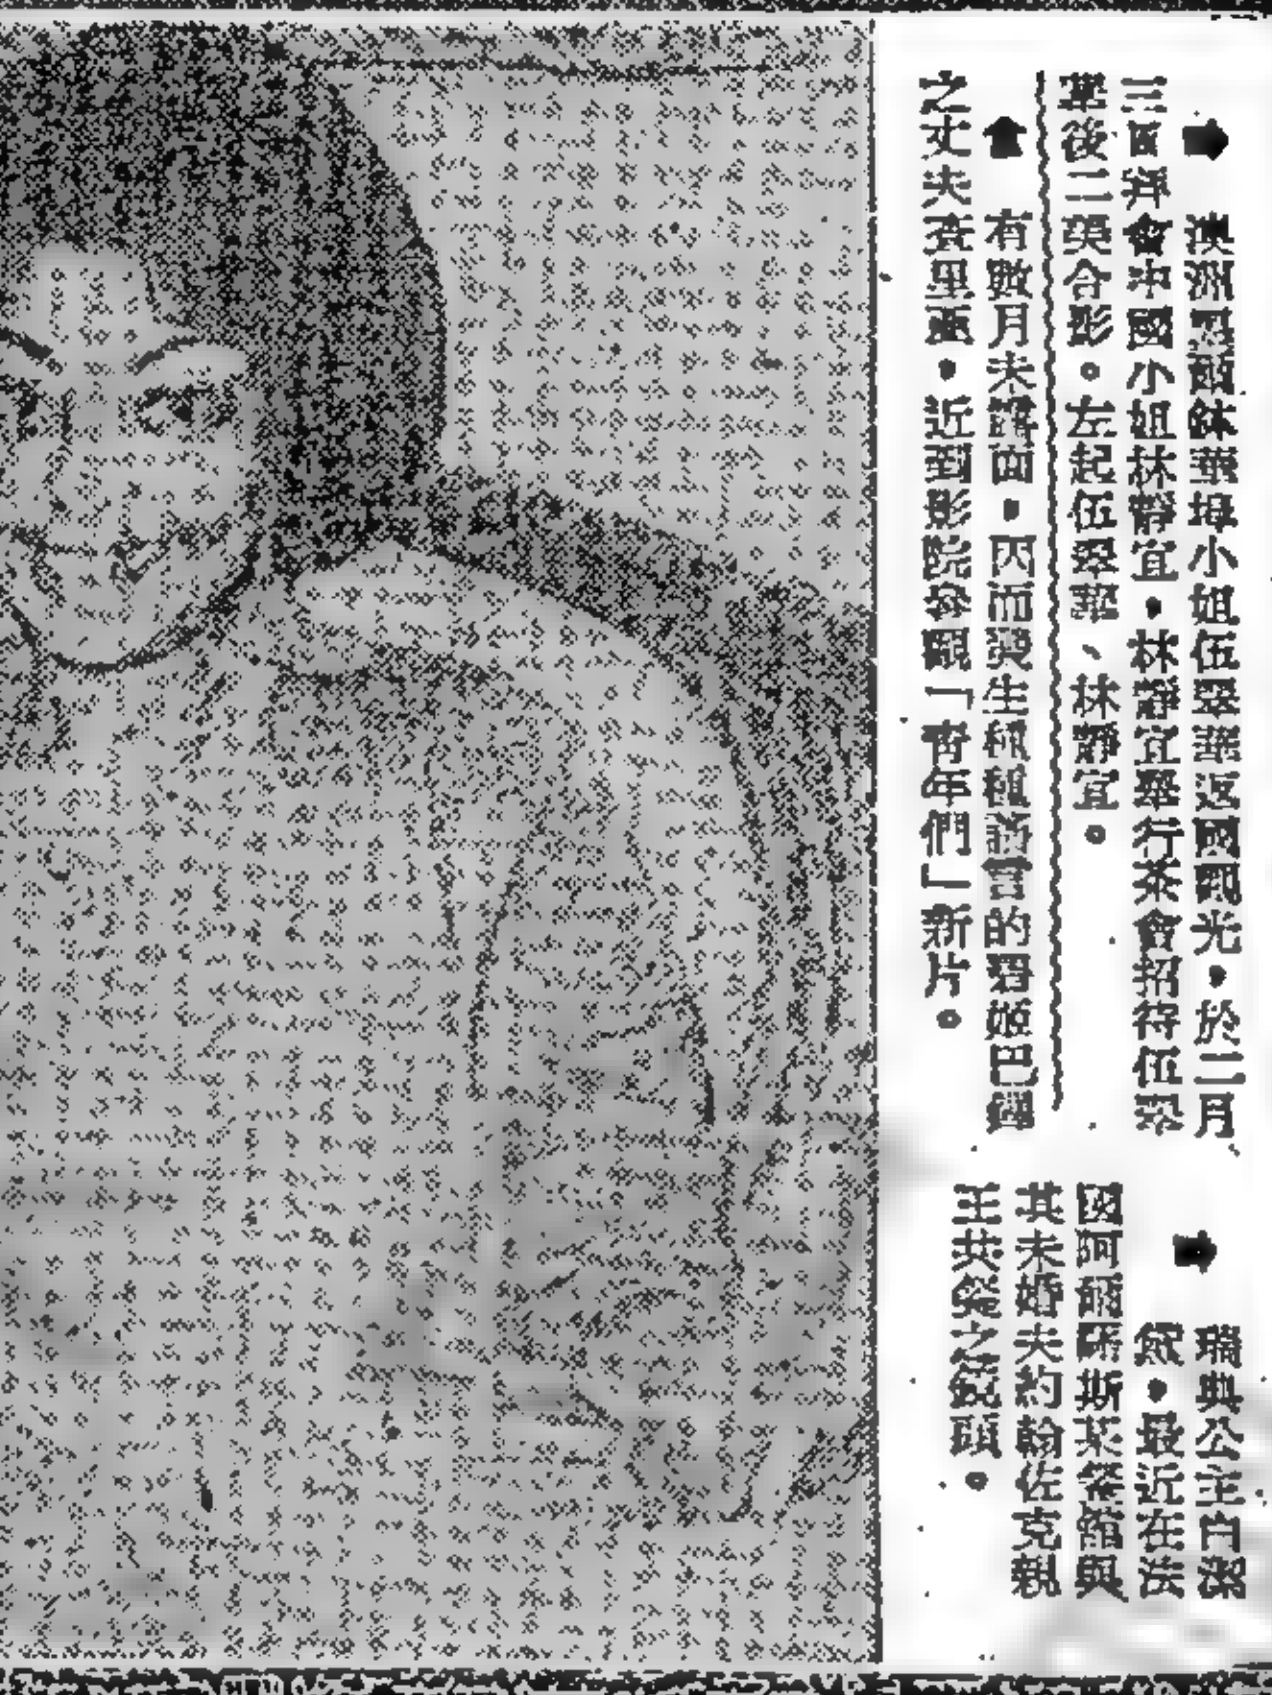 澳洲墨爾鉢華埠小姐伍翠華返國觀光，於二月
三日拜會中國小姐林靜宜，林靜宜舉行茶會招待伍翠
華後二美合影。左起伍翠華、林靜宜。
有數月未露面，因而發生種種謠言的碧姬巴鐸
之丈夫查里蓋，近到影院參觀「青年們」新片。
瑞典公主白潔
黛，最近在法
國阿爾卑斯某餐館與
其未婚夫約翰佐克親
王共餐之鏡頭。